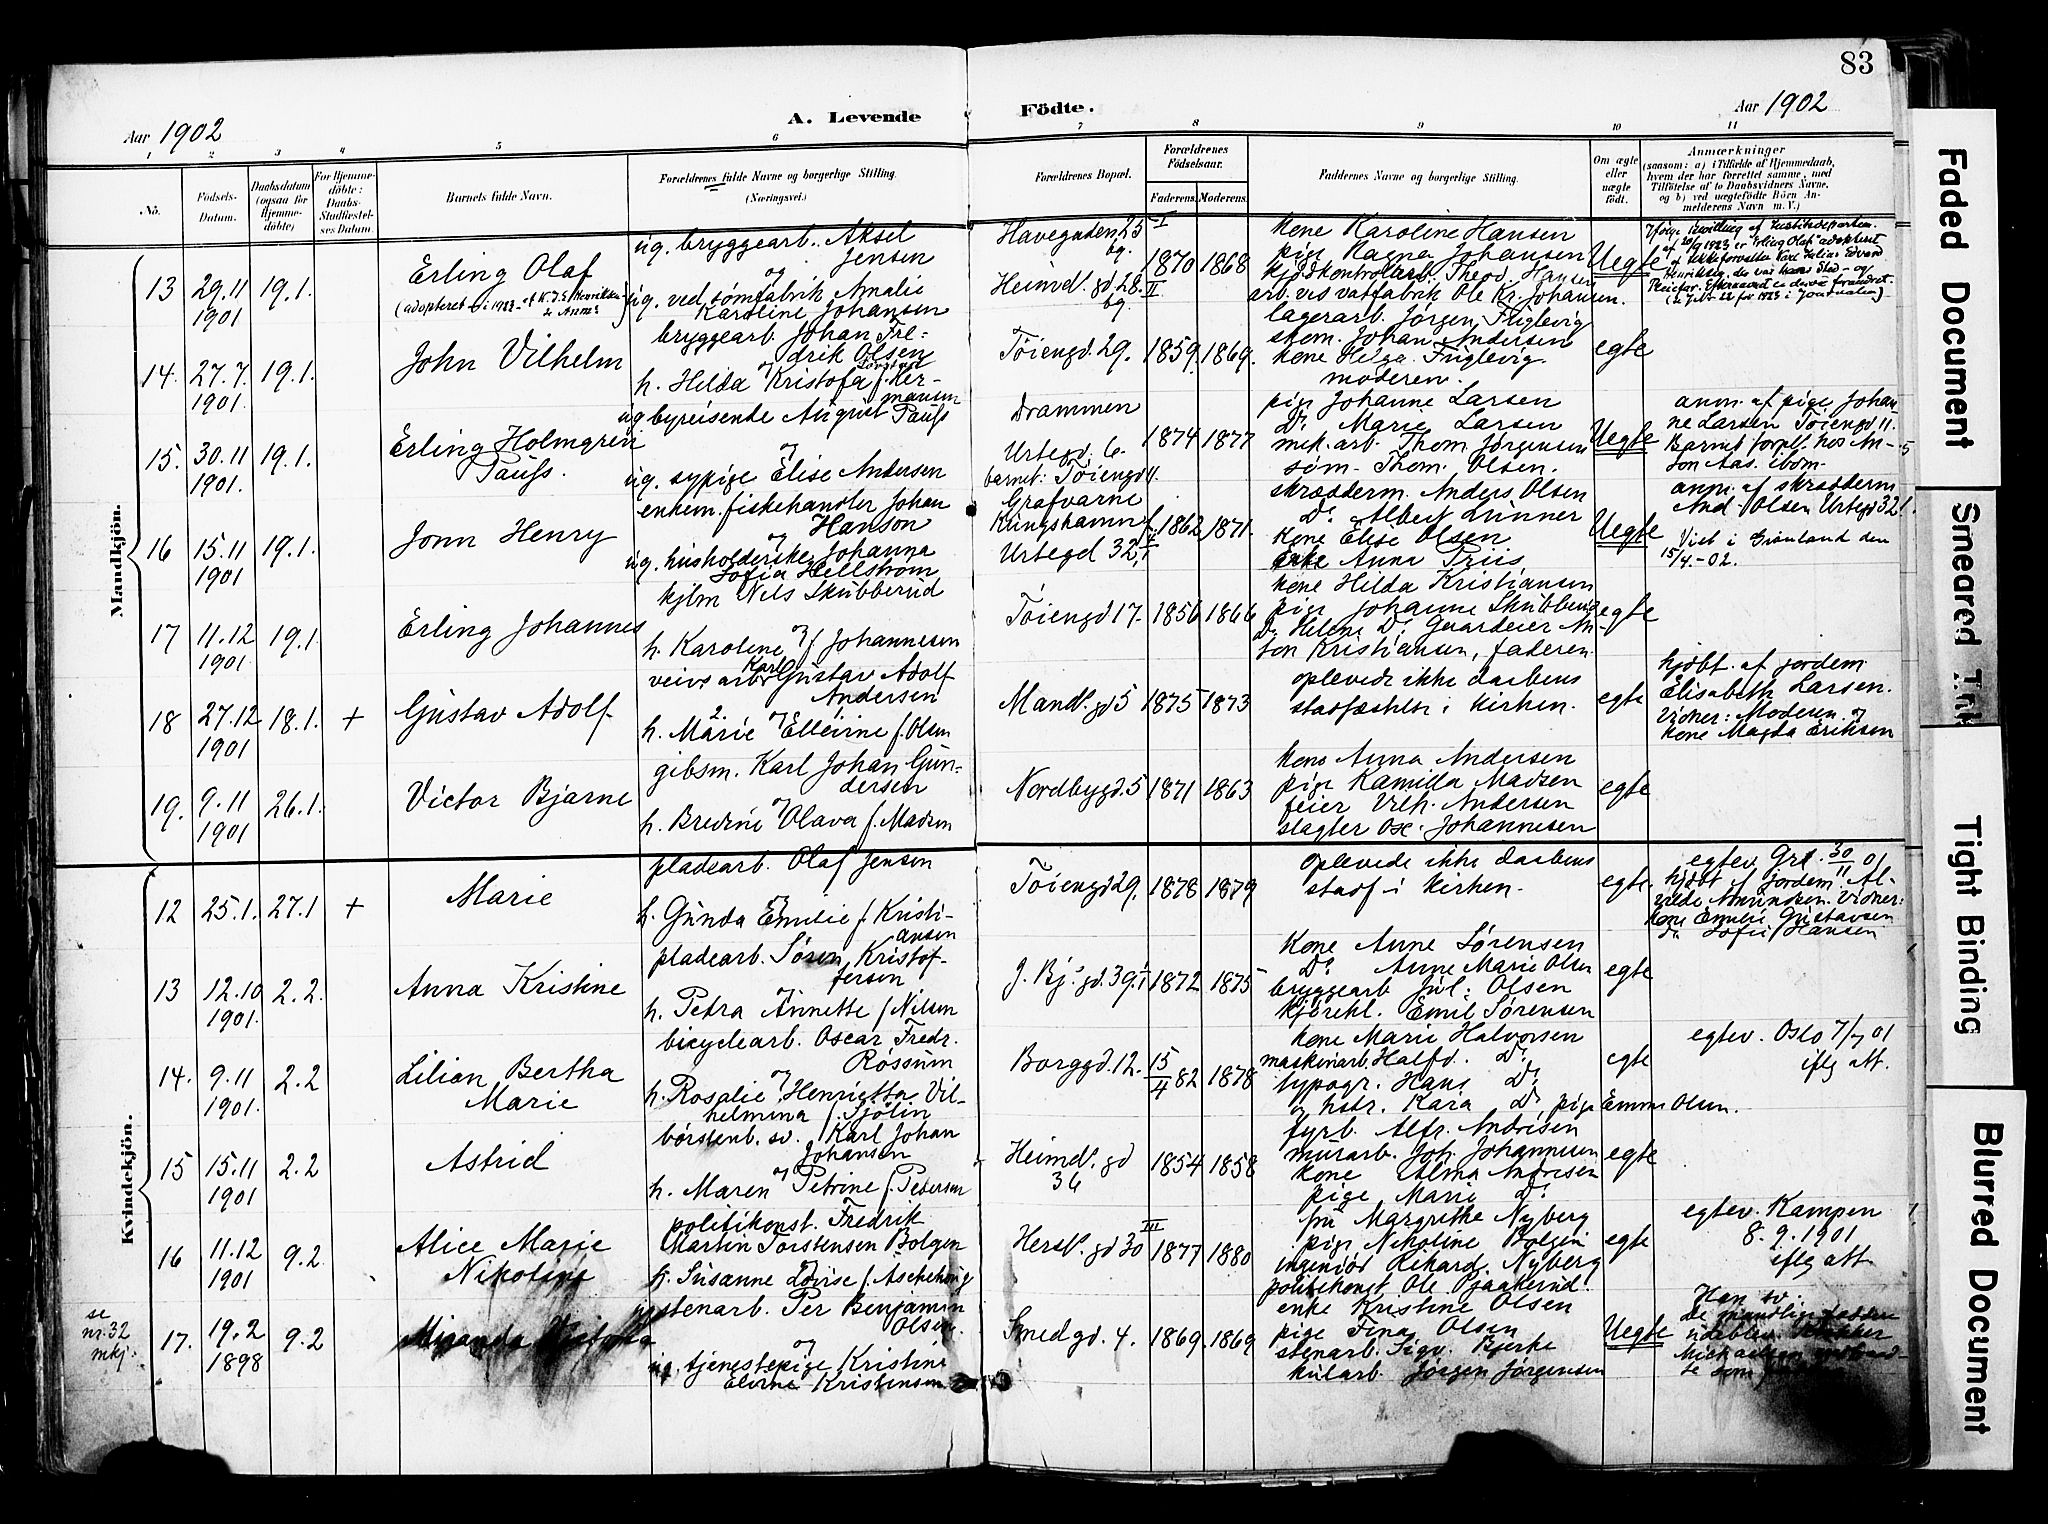 83
Aar 1902
A. Levende
Födte.
Aar 1902
1 2 3 4 5 6 7 8 9 10 11
No.
Födsels-Datum.
Daabsdatum (ogsaa for Hjemme-döbte)
For Hjemme-döbte: Daabs-Stadfæstel-ses Datum.
Barnets fulde Navn.
Forældrenes fulde Navne og borgerlige Stilling.
(Næringsvei.)
Forældrenes Bopæl.
Forældrenes Födselsaar.
Faderens. Moderens.
Faddernes Navne og borgerlige Stilling.
Om ægte eller uægte født.
Anmærkninger
(saasom: a) i Tilfælde af Hjemmedaab, hvem der har forrettet samme, med Tilföielse af to Daabsvidners Navne, og b) ved uægtefödte Börn An-melderens Navn m. V.)
Mandkjön.
13
29.11
1901
19.1.
Erling Olaf
ug. bryggearb. Aksel
Jensen
og
ug. ved sömfabrik Amalie
Karoline Johansen
Havegaden 25 I
bg.
Heimd. gd 28 II
bg.
1870 1868
kone Karoline Hansen
pige Ragna Johansen
kjödkontrollarb. Theod. Hansen
arb. ves vatfabrik Ole Kr. Johansen.
Uegte
14.
27.7.
1901.
19.1.
John Vilhelm
bryggearb. Johan Fre-
drik Olsen
og
h. Hilda Kristofa f. Her-
mansen
Töiengd. 29.
1859. 1869.
lagerarb. Jörgen Fuglevig
skom. Johan Andersen
kone Helga Fuglevig.
moderen.
egte
15.
30.11
1901.
19.1.
Erling Holmgren
Pauss.
ug byreisende August Pauss
og
ug. sypige Elise Andersen
Drammen
Urtegd. 6.
barnet: Töiengd 11.
1874 1877
pige Johanne Larsen
Do Marie Larsen
mek. arb. Thom. Jörgensen
söm. Thom. Olsen.
Uegte
anm. af pige Johan-
ne Larsen Töiengd 11.
Barnet forpl. hos An-
ton Aas. ibdm.
16
15.11
1901
19.1.
Jonn Henry
enkem. fiskehandler Johan
Hanson
og
ug. husholderske Johanna
Sofia Hellström
Grafvarne
Kungshamn
Urtegd 32,
1862 1871.
skrædderm. Anders Olsen
Do Albert Linner
kone Elise Olsen
enke Anna Priis
Uegte
anm. af skrædderm
And. Olsen Urtegd 32
Viet i Grönland den
15/4-02.
17
11.12
1901.
19.1.
Erling Johannes
kjlm Nils Skubberud
og
h. Karoline f. Johannesen
Töiengd 17.
1856 1866
kone Hilda Kristiansen
pige Johanne Skubberud
Do Helene Do Guardeier An-
ton Kristiansen, faderen
egte
18
27.12
1901
18.1.
+
Gustav Adolf
veiv. arb. Karl Gustav Adolf
Andersen
og
h. Marie Elleine f. Olsen
Mandl. gd 5
1875 1873
oplevede ikke daabens
stadfæstelse i kirken.
egte
hjdbt. af jordem
Elisabeth Larsen.
Vidner: Moderen og
kone Magda Eriksen
19.
9.11
1901
26.1.
Victor Bjarne
gibsm. Karl Johan Gun-
dersen
og
h. Bredine Olava f. Madsen
Nordbygd. 5
1871 1863
kone Anna Andersen
pige Kamilla Madsen
feier Vilh. Andersen
slagter Osc. Johannesen
egte
Kvindekjön.
12
25.1.
27.1
+
Marie
pladearb. Olaf Jensen
og
h. Gunda Emilie f. Kristi-
ansen
Töiengd 29.
1878 1879
oplevede ikke daabens
stadf i kirken.
egte
egtev. Grl. 30/11 01
hjdbt af jordem. Al-
vilde Amundsen. Vidner:
kone Emelie Gustavsen
do Sofie Hansen
13
12.10
1901.
2.2.
Anna Kristine
pladearb. Sören Kristof-
fersen
og
h. Petra Annette f. Nilsen
J. Bj. gd. 39 I
1872 1875
kone Anne Sörensen
Do Anne Marie Olsen
bryggearb Jul. Olsen
kjörekl. Emil Sörensen
egte
14.
9.11
1901.
2.2
Lilian Bertha
Marie
bicyclearb. Oscar Fredr.
Røssum
og
h. Rosalie Henrietta Vil-
helmina f. Sjölin
Borggd. 12.
15/4 82 1878
kone Marie Halvorsen
maskinarb. Halfd. Do
typogr. Hans Do
Kara Do pige Emma Olsen.
egte
egtev. Oslo 7/7 01
iflg att.
15
15.11
1901
2.2
Astrid
börstenb. sv. Karl Johan
Johansen
og
h. Maren Petrine f. Pedersen
Heimd. gd
36
1854 1858
fyrb. Alfr. Andresen
murarb. Joh. Johannesen
kone Alma Andresen
pige Marie Do
egte
16
11.12
1901
9.2.
Alice Marie
Nikoline
politikonst. Fredrik
Martin Torstensen Bolgen
og
h. Susanne Lovise f. Aschehoug
Hersl. gd 30 III
1877 1880
fru Margrethe Nyberg
pige Nikoline Bolgen
ingeniør Rikard Nyberg
politikonst Ole Bjaakerud.
egte
egtev. Kampen
8.9.1901
iflg att.
se
nr. 32
mkj.
17.
19.2
1898
9.2
Miranda
ug stenarb. Per Benjamin
Olsen.
og
ug. tjenestepige Kristine
Elvine Kristensen
Smedgd. 4.
1869. 1869
enke Kristine Olsen
pige Fina Olsen
stenarb. Sigv. Bjerke
kularb. Jörgen Jörgensen
Uegte
Faded Document
Smeared Ink
Tight Binding
Blurred Document